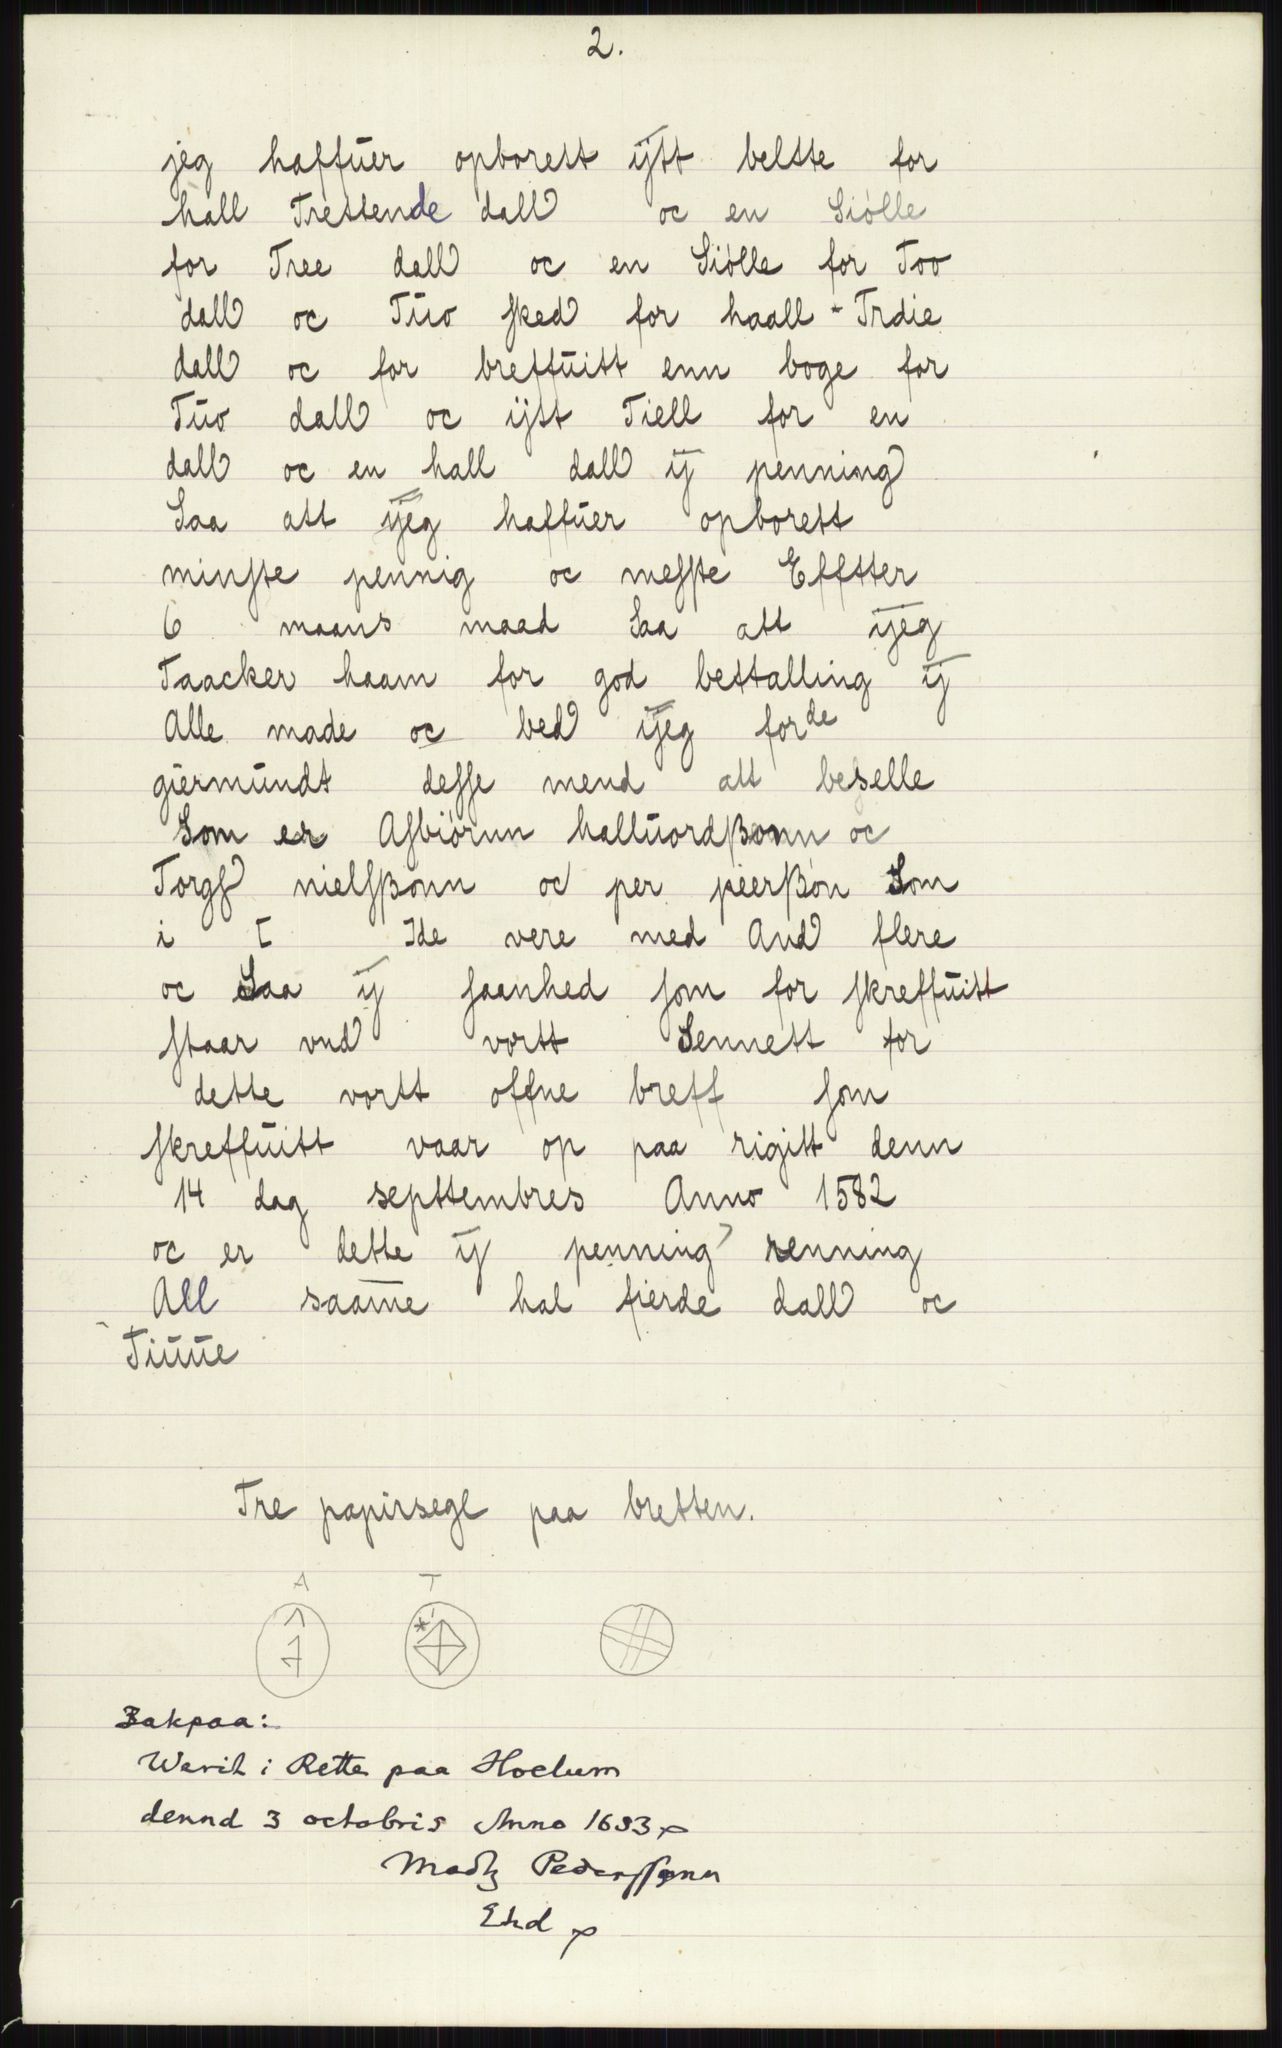 2.
jeg haffūer opborett ÿtt beltte for
hall Trettende dall oc en Siölle
for Tree dall oc en Siölle for Too
dall oc Tūo sked for haall - Trdie
dall oc for breffūitt enn boge for
Tūo dall oc ijtt Tiell for en
dall oc en hall dall ij penning
Saa att ijeg haffuer opborett
minste pennig oc messte Effter
6 maans maad Saa att ijeg
Taacker haam for god bettalling ij
Alle made oc bed ijeg forde
giermūndt desse mend att beselle
Som er Asbiörnn hallūordßonn oc
Torgß nielsßonn oc per peerßon Som
i I Ide vere med And flere
oc Saa ij saanhed som for skreffūitt
staar vnd vortt Sennett for
dette vortt offne breff som
skreffūitt vaar op paa rigitt denn
14 dag septtembres Anno 1582
oc er dette ij penning renning
All saame hal fierde dall oc
Tiūūe
Tre papirsegl paa bretten.
A T
Bakpaa:
Werit i Rette paa Hoelum
dennd 3 octobris Anno 1633
Madz Pederssønn
Ehd